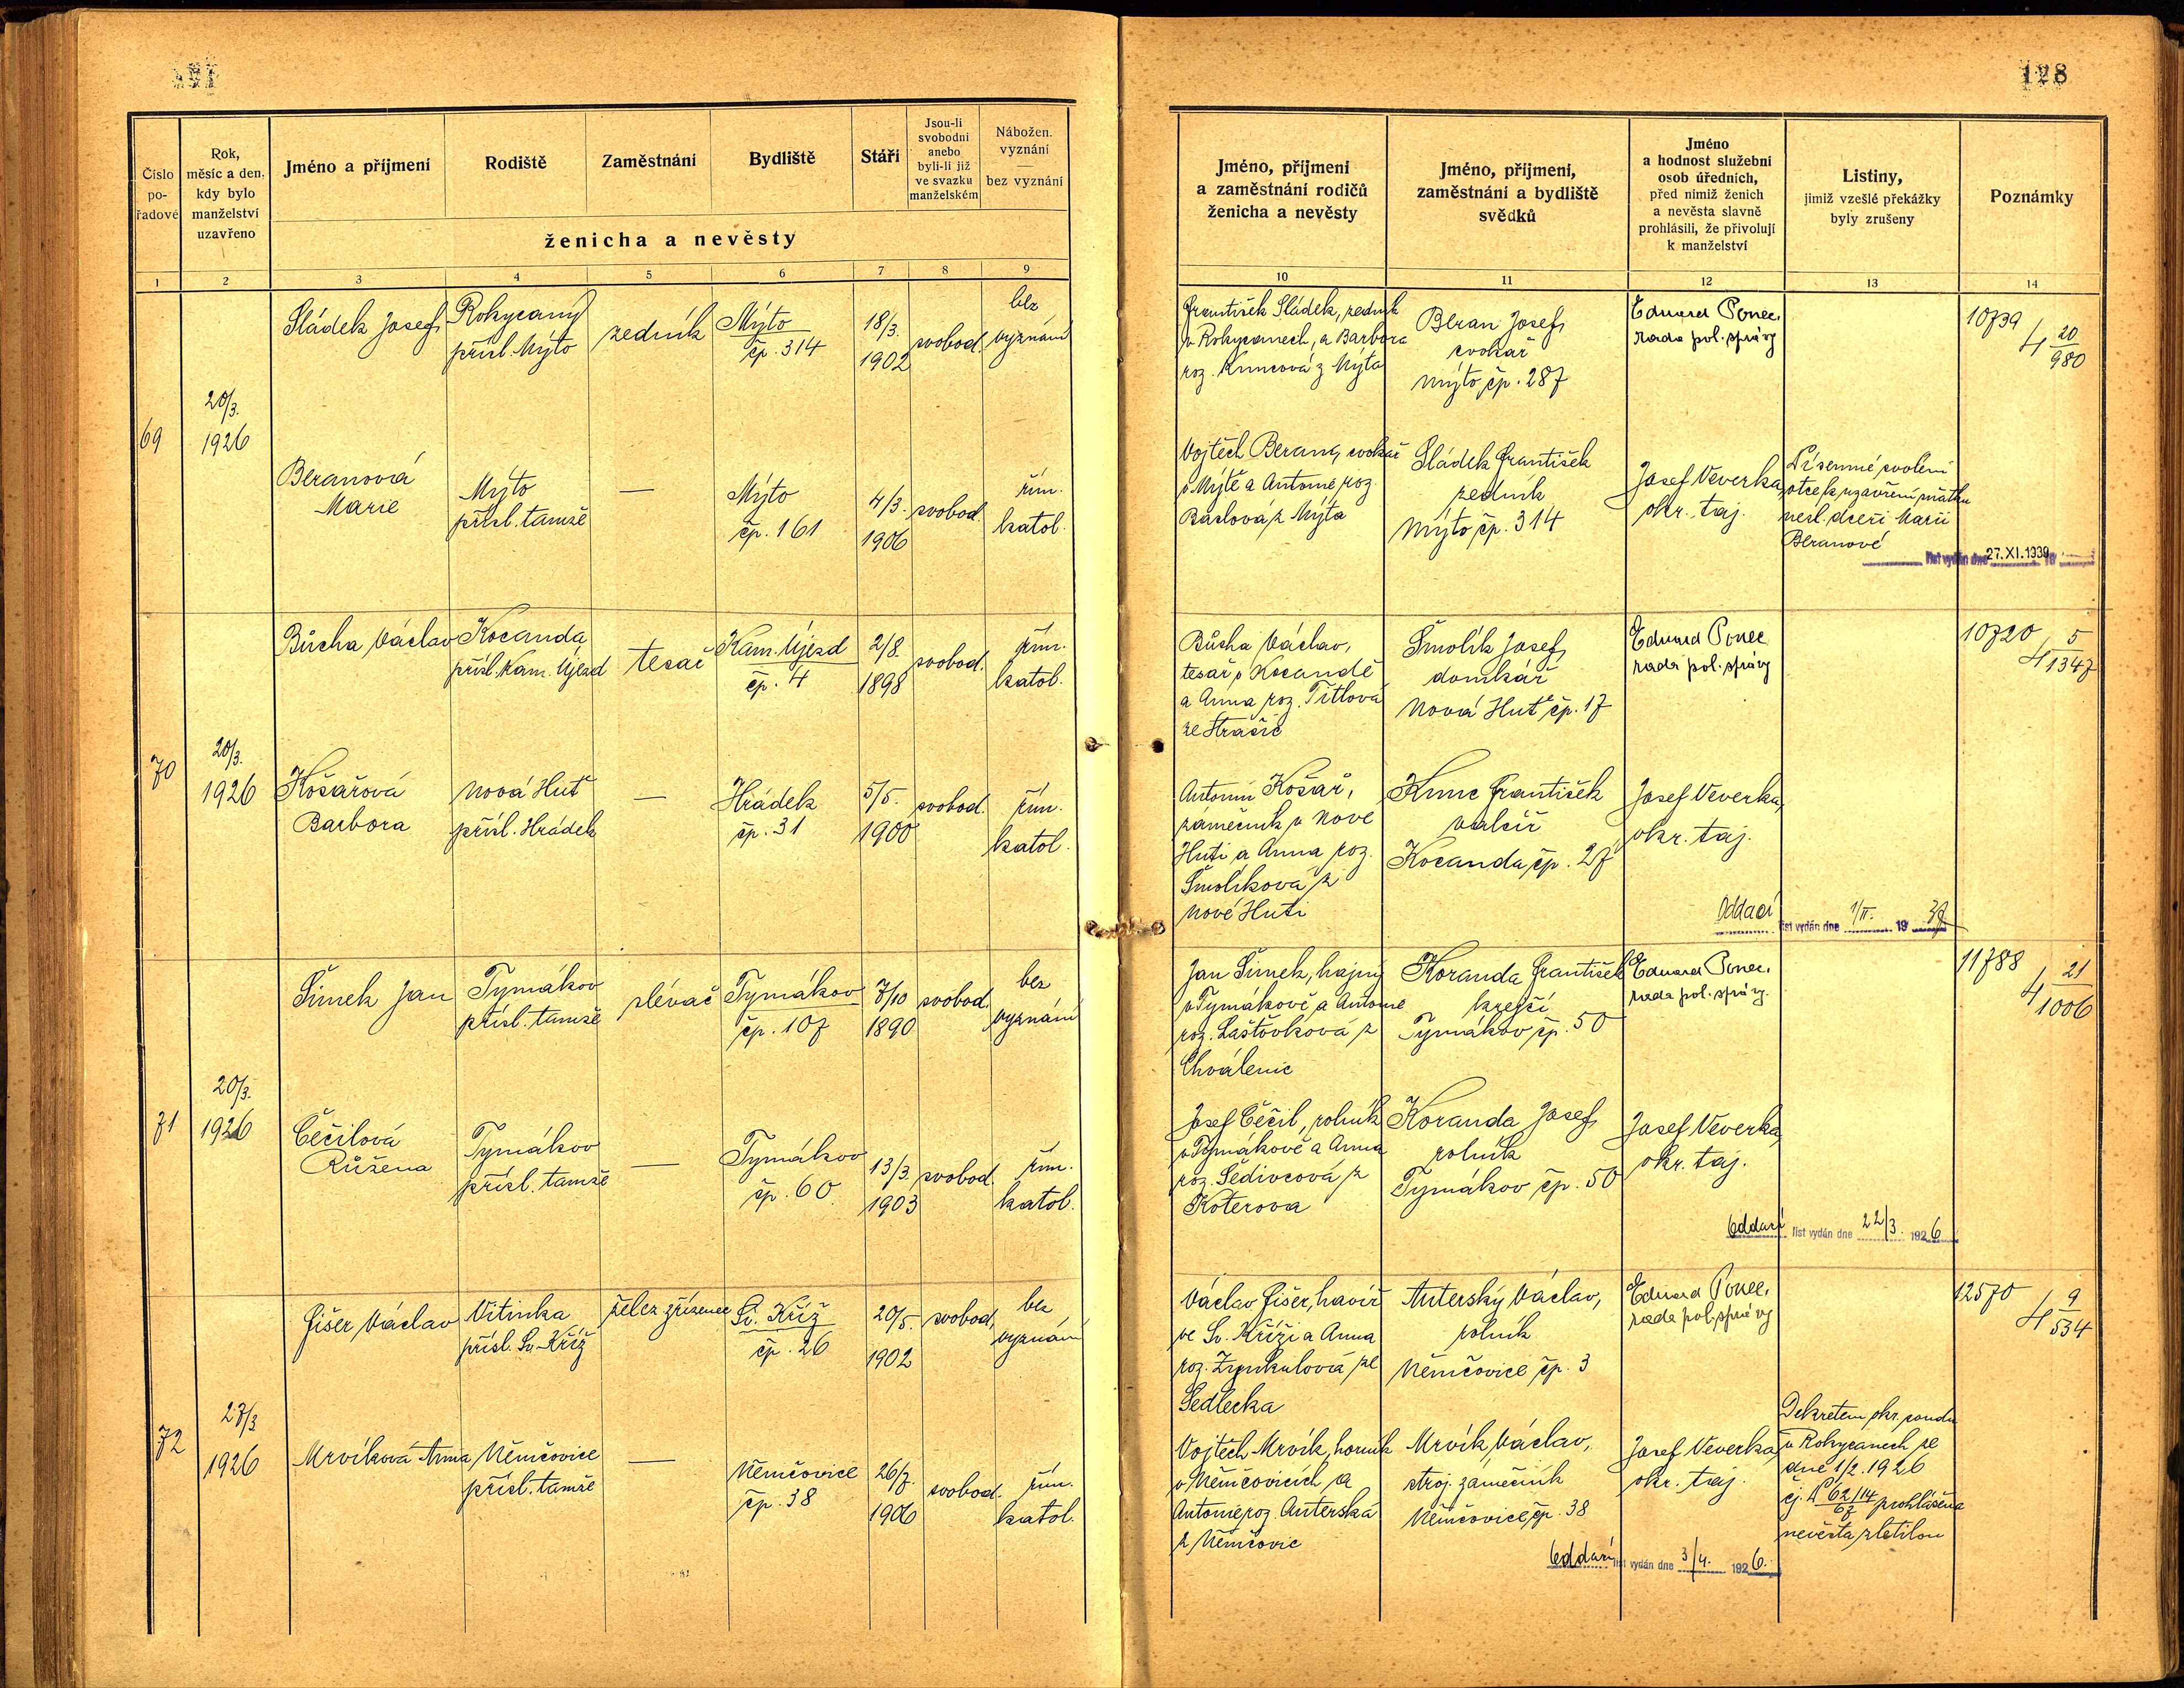 128
Číslo po-řadové
Rok, měsíc a den, kdy bylo manželství uzavřeno
Jméno a příjmení
Rodiště
Zaměstnání
Bydliště
Stáří
Jsou-li svobodni anebo byli-li již ve svazku manželském
Nábožen. vyznání — bez vyznání
ženicha a nevěsty
Jméno, příjmení a zaměstnání rodičů ženicha a nevěsty
Jméno, příjmení, zaměstnání a bydliště svědků
Jméno a hodnost služební osob úředních, před nimiž ženich a nevěsta slavně prohlásili, že přivolují k manželství
Listiny, jimiž vzešlé překážky byly zrušeny
Poznámky
1 2 3 4 5 6 7 8 9 10 11 12 13 14
69
20/3.
1926
Sládek Josef
Rokycany
přísl. Mýto
zedník
Mýto
čp. 314
18/3.
1902
svobod.
bez
vyznání
František Sládek, zedník
v Rokycanech, a Barbora
roz. Kuncová z Mýta
Beran Josef,
cvokař
Mýto, čp. 287
Eduard Ponec,
rada pol. správy
10739
4 20/980
Beranová
Marie
Mýto
přísl. tamže
—
Mýto
čp. 161
4/3.
1906
svobod.
řím.
katol.
Vojtěch Beran, cvokař
v Mýtě a Antonie roz.
z Mýta
Sládek František
zedník
Mýto, čp. 314
Josef Veverka,
okr. taj.
Písemné svolení
otce k uzavření sňatku
nezl. dceři Marii
Beranové
list vydán dne 27.XI.1939
70
20/3.
1926
Bůcha Václav
Kocanda
přísl. Kam. Újezd
tesař
Kam. Újezd
čp. 4
2/8.
1898
svobod.
řím.
katol.
Bůcha Václav,
tesař v Kocandě
a Anna roz. Títlová
ze Strašic
Šmolík Josef,
domkář
Nová Huť čp. 17
Eduard Ponec
rada pol. správy
10720
4 5/1347
Košařová
Barbora
Nová Huť
přísl. Hrádek
—
Hrádek
čp. 31
5/5.
1900
svobod.
řím.
katol.
Antonín Košař,
zámečník v Nové
Huti a Anna roz.
Šmolíková z
Nové Huti
Kunc František
valcíř
Kocanda, čp. 27
Josef Veverka,
okr. taj.
Oddací list vydán dne 1/II. 19 39
71
20/3.
1926
Šimek Jan
Tymákov
přísl. tamže
slévač
Tymákov
čp. 107
7/10
1890
svobod.
bez
vyznání
Jan Šimek, hajný
v Tymákově, a Antonie
roz. Laštovková z
Chválenic
Koranda František
krejčí
Tymákov čp. 50
Eduard Ponec,
rada pol. správy.
11788
4 21/1006
Čečilová
Růžena
Tymákov
přísl. tamže
—
Tymákov
čp. 60
13/3.
1903
svobod.
řím.
katol.
Josef Čečil, rolník
v Tymákově a Anna
roz. Šedivcová z
Koterova
Koranda Josef,
rolník
Tymákov čp. 50
Josef Veverka,
okr. taj.
Oddací list vydán dne 22/3. 1926
72
27/3
1926
Fišer Václav
Vitinka
přísl. Sv. Kříž
želez. zřízenec
Sv. Kříž
čp. 26
20/5.
1902
svobod,
bez
vyznání
Václav Fišer, havíř
ve Sv. Kříži a Anna
roz. ze
Sedlecka
Auterský Václav,
rolník
Němčovice čp. 3
Eduard Ponec,
rada pol. správy
12570
4 9/534
Mrvíková Anna
Němčovice
přísl. tamže
—
Němčovice
čp. 38
26/7.
1906
svobod.
řím.
katol.
Vojtěch Mrvík, horník
v Němčovicích a
Antonie, roz. Auterská
z Němčovic
Mrvík Václav,
stroj. zámečník
Němčovice, čp. 38
Josef Veverka,
okr. taj.
Dekretem okr. soudu
v Rokycanech ze
dne 1/2. 1926
čj. 62/14 prohlášena
nevěsta zletilou
Oddací list vydán dne 3/4. 1926.